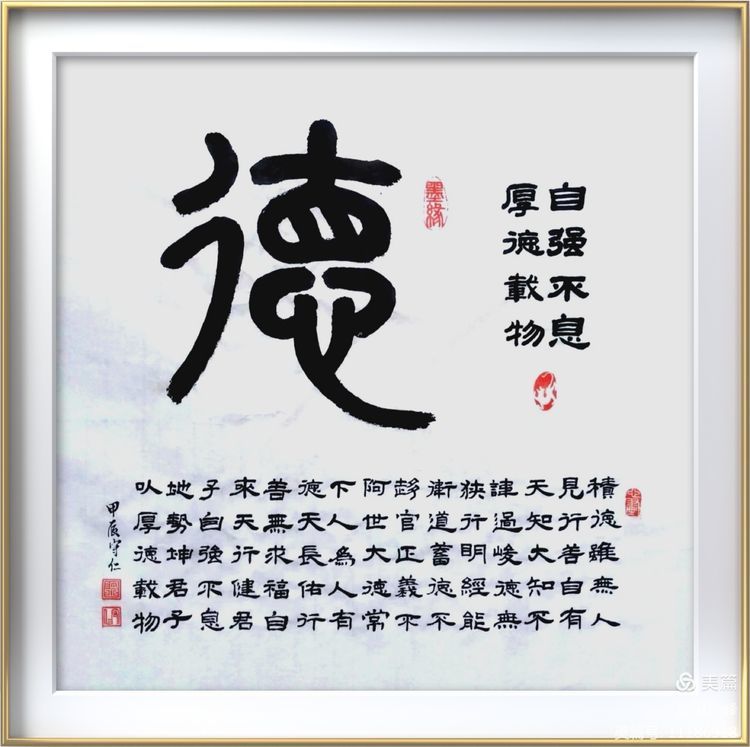 德
墨緣
自强不息
厚德載物
積德雖無人
見行善自有
天知大知不
諱過峻德無
狹行明經能
衛道蓄德不
彰官正義不
阿世大德常
下人為人有
德天長佑行
善無求福自
來天行健君
子自强不息
地勢坤君子
以厚德載物
甲辰守仁
美篇